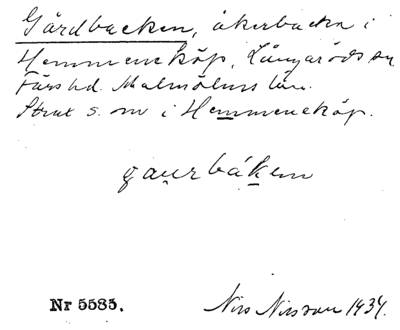 Gårdbacken, åkerbacka i
Hemmeneköp, Långaröds sn
Färs hd. Malmöhus län.
Strax s. om i Hemmeneköp.
gau̯rbáken
Nr 5585.
Nils Nilsson 1934.